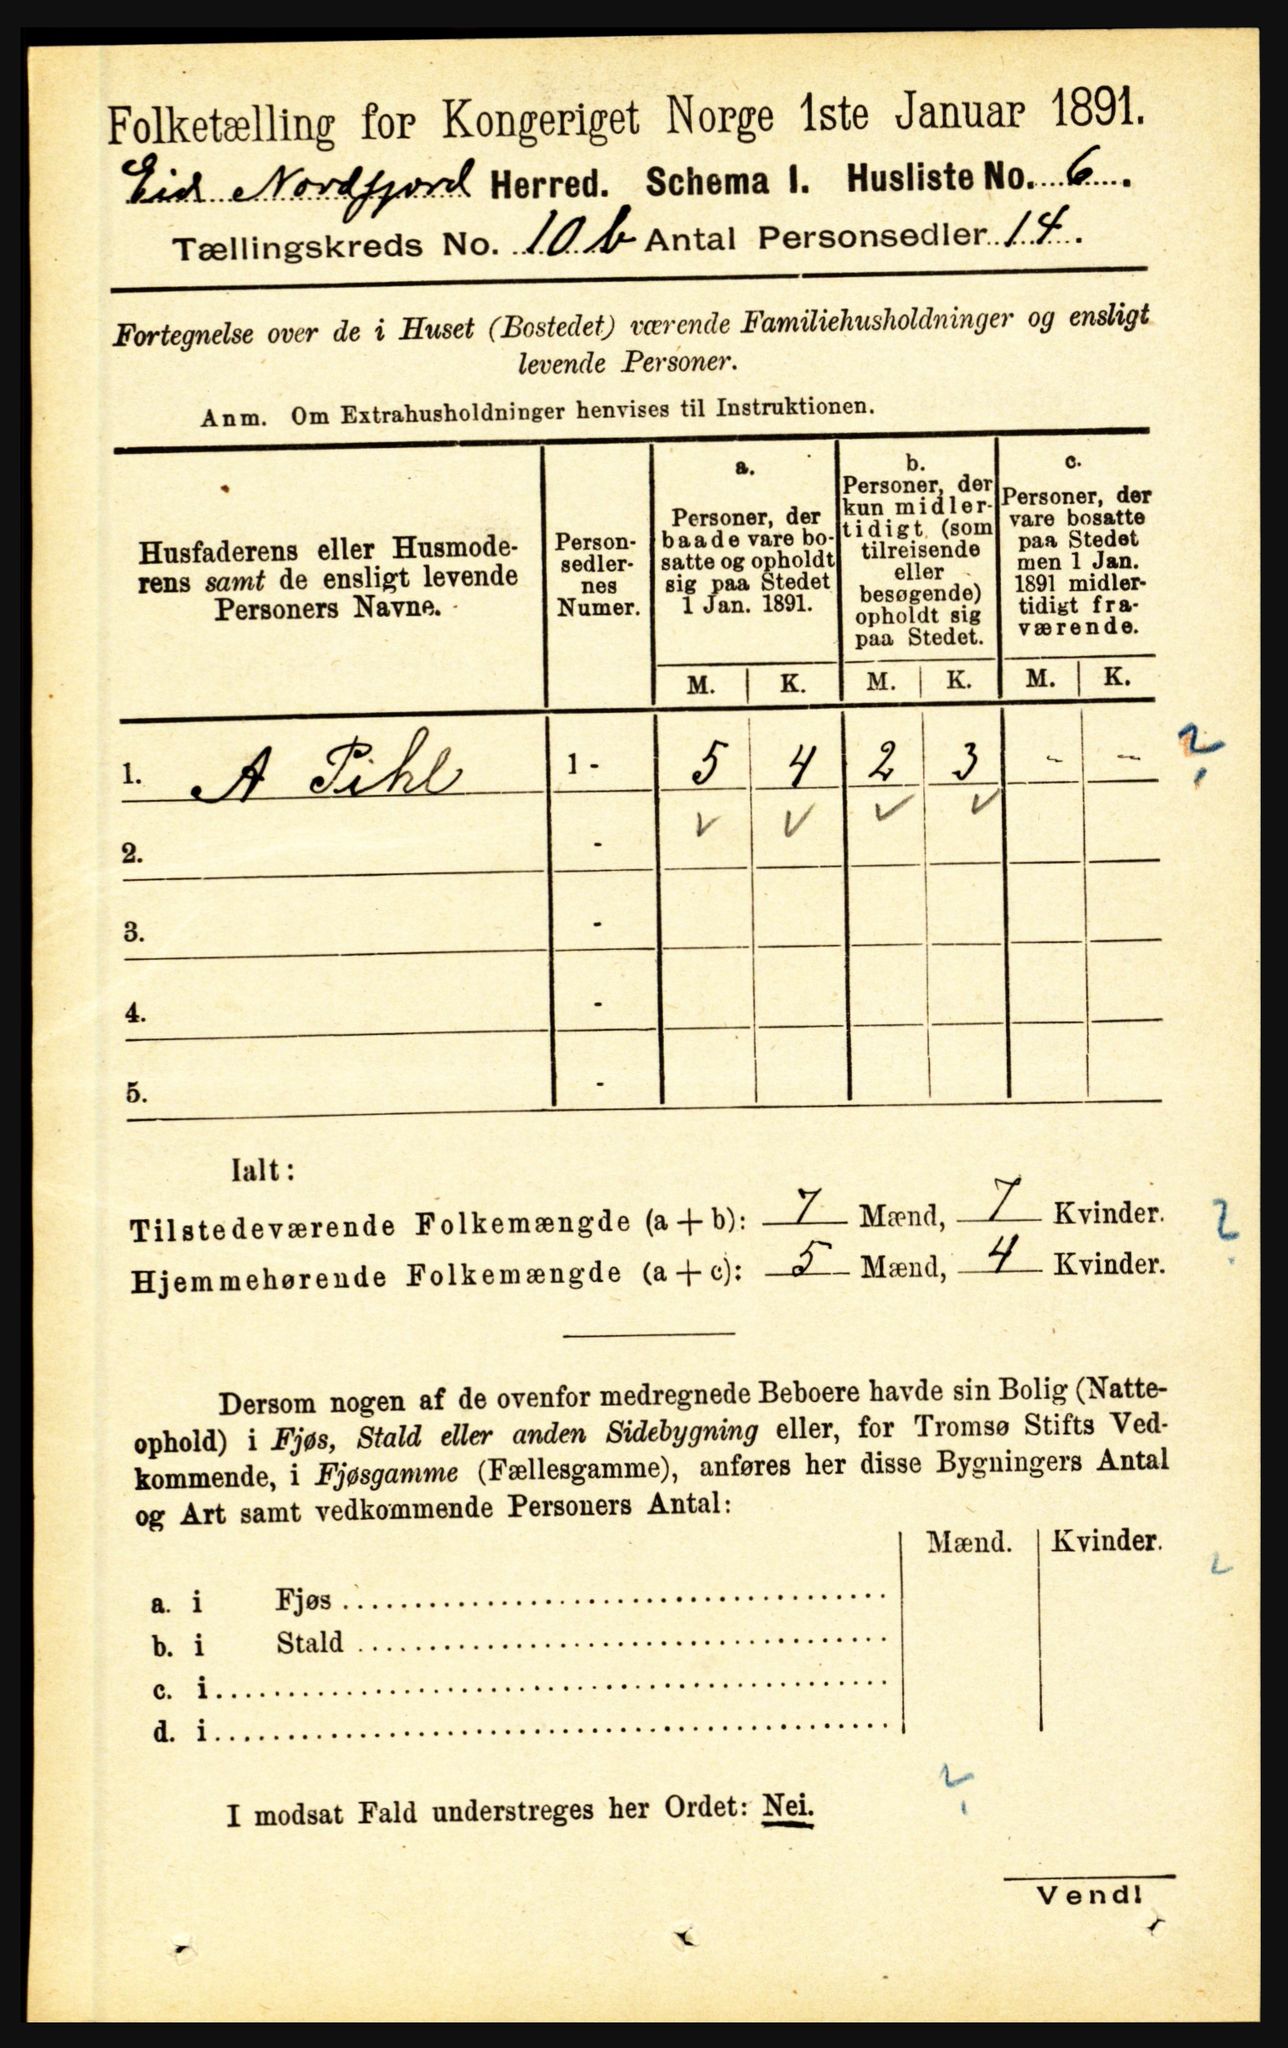 Folketælling for Kongeriget Norge 1ste Januar 1891.
Eid Nordfjord Herred. Schema I. Husliste No. 6.
Tællingskreds No. 10 b Antal Personsedler 14.
Fortegnelse over de i Huset (Bostedet) værende Familiehusholdninger og ensligt
levende Personer.
Anm. Om Extrahusholdninger henvises til Instruktionen.
Husfaderens eller Husmode-
rens samt de ensligt levende
Personers Navne.
Person-
sedler-
nes
Numer.
a.
Personer, der
baade vare bo-
satte og opholdt
sig paa Stedet
1 Jan. 1891.
b.
Personer, der
kun midler-
tidigt (som
tilreisende
eller
besøgende)
opholdt sig
paa Stedet.
c.
Personer, der
vare bosatte
paa Stedet
men 1 Jan.
1891 midler-
tidigt fra-
værende.
M. K. M. K. M. K.
1. A Pihl 1 - 5 4 2 3 - -
2. -
3. -
4. -
5. -
Ialt:
Tilstedeværende Folkemængde (a + b): 7 Mænd, 7 Kvinder.
Hjemmehørende Folkemængde (a + c): 5 Mænd, 4 Kvinder.
Dersom nogen af de ovenfor medregnede Beboere havde sin Bolig (Natte-
ophold) i Fjøs, Stald eller anden Sidebygning eller, for Tromsø Stifts Ved-
kommende, i Fjøsgamme (Fællesgamme), anføres her disse Bygningers Antal
og Art samt vedkommende Personers Antal:
Mænd. Kvinder.
a. i Fjøs
b. i Stald
c. i
d. i
I modsat Fald understreges her Ordet: Nei.
Vend!